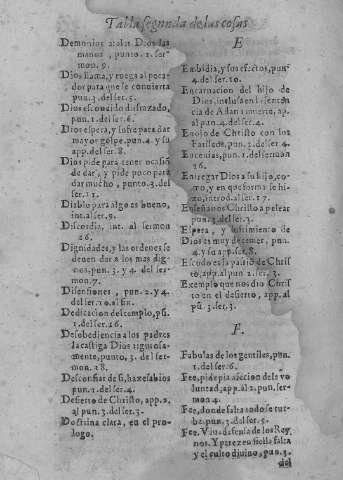 Tabla segunda de las cosas
Demonios atalos Dios las
manos, punto.1.ser-
mon.9.
Dios llama, y ruega al peca-
dor para que se conuierta
pun.3.del ser.5.
Dios escondido disfrazado,
pun.1.del ser.6.
Dios espera, y sufre para dar
mayor golpe. pun.4. y su
app.del ser.8.
Dios pide para tener ocasiõ
de dar, y pide poco para
dar mucho, punto.3.del
ser.11.
Diablo para algo es bueno,
int.al ser.9.
Discordia, int. al sermon
26.
Dignidades, y las ordenes se
deuen dar a los mas dig-
nos, pun.3. y 4. del ser-
mon.7.
Disensiones, pun.2. y 4.
del ser.10.al fin.
Dedicacion del templo, pũ
1.del ser.26.
Desobediencia a los padres
la castiga Dios rigurosa-
mente, punto.3. del ser-
mon.28.
Desconfiar de si, haze sabios
pun.1.del ser.4.
Desierto de Christo, app.2.
al pun.3.del ser.3.
Doctrina clara, en el pro-
logo.
E
Embidia, y sus efectos, pun
4.del ser.10.
Encarnacion del hijo de
Dios, inclusa en la senten-
cia de Adan a muerte, ap.
al pun.4.del ser.4.
Enojo de Christo con los
Fariseos, pun.2.del ser.4.
Encenias, pun.1.del sermon
26.
Entregar Dios a su hijo, co-
mo, y en que forma se hi-
zo, introd.al ser.17.
Enseñanos Christo a pelear
pun.3.del ser.3.
Espera, y sufrimiento de
Dios es muy de temer, pun.
4. y su app.ser.8.
Escudo es la passiõ de Chris
to, app.al pun 2.ser.3.
Exemplo que nos dio Christ
to en el desierto, app.al
pũ.3.ser.3.
F.
Fabulas de los gentiles, pun.
1.del ser.6.
Fee, pide pia afeccion de la vo
luntad, app.al 2.pun.ser-
mon 4.
Fee, donde falta todo se tur-
ba, pun.5.del ser.3.
Fee. Viua defensa de los Rey
nos. Y perezen si ella falta
y el culto diuino, pun.3.
del